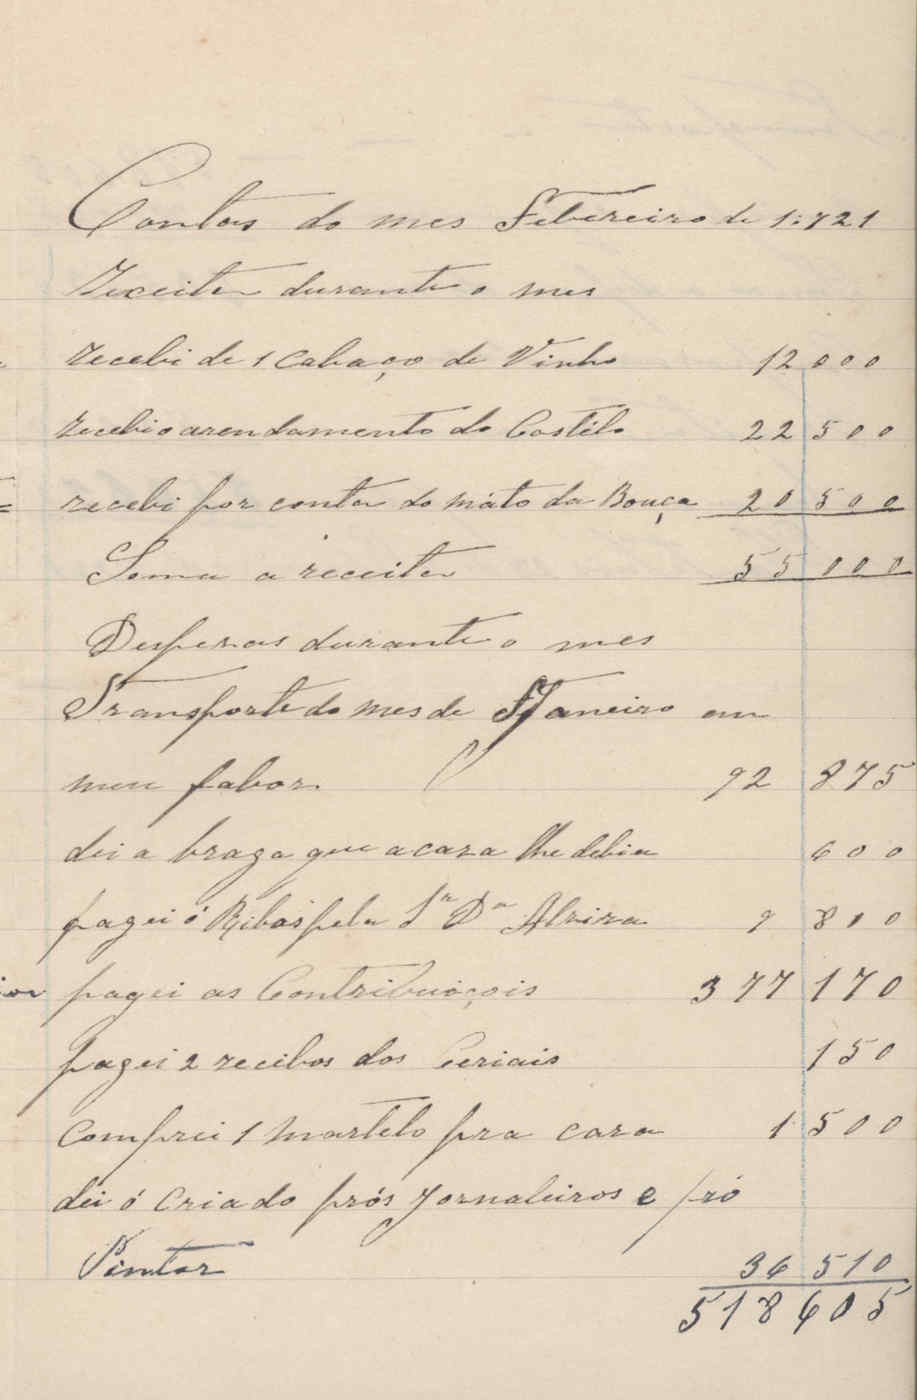 Contas do mes Febereiro de 1:921
Receita durante o mes
recebi de 1 Cabaço de Vinho 12 000
recebi o arendamento do Castélo 22 500
recebi por conta do máto da Bouça 20 500
Soma a receita 55 000
Despezas durante o mes
Transporte do mes de Janeiro em
meu fabor. 92 875
dei a braga que a caza lhe debia 600
pagei ó Ribas pela Sra Da Alzira 9 800
pagei as Contribuiçois 377 170
pagei 2 recibos dos Ceriais 150
Comprei 1 martelo pra caza 1 500
dei ó Criado prós Jornaleiros e pró
Pintor 36 510
518 605